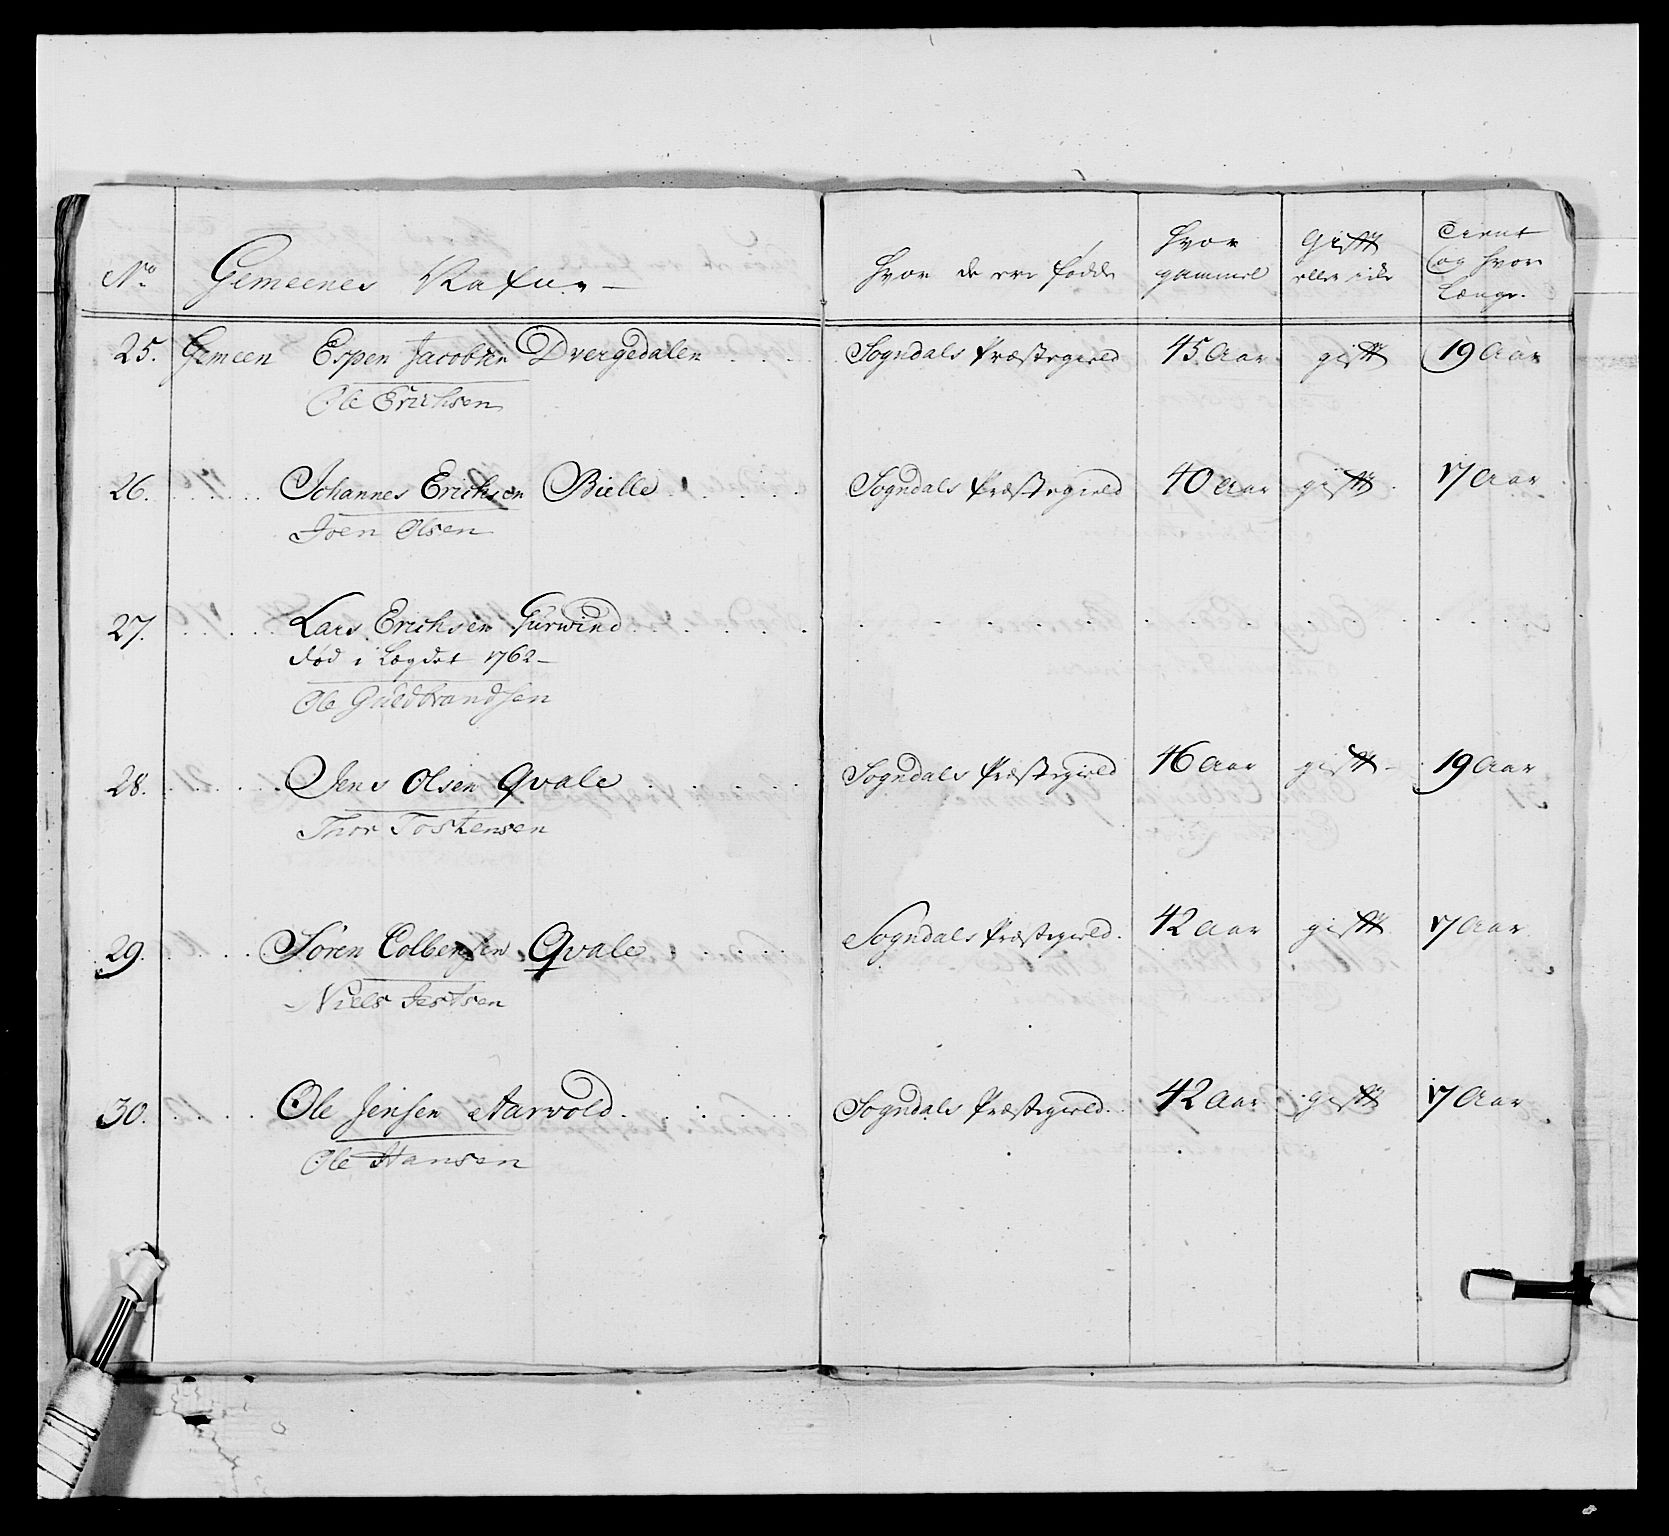 No. Gemeenes Nafne — Hvor de ere födde Hvor gammel Gift eller icke Tient og hvor Længe.
25. Gemeen Espen Jacobsen Dvergedalen . . . Sogndals Præstegield 45 Aar gift 19 Aar
Ole Erichsen
26. . . . . . Johannes Erichsen Bielle . . . . . Sogndals Præstegield 40 Aar gift 17 Aar
Joen Olsen
27. . . . . . Lars Erichsen Gurwind . . . . . .
død i Lægdet 1762 —
Ole Guldbrandsen
28. . . . . . Jens Olsen Qvale . . . . . Sogndals Præstegield 46 Aar gift 19 Aar
Thor Tostensen
29. . . . . Sören Colbensen Qvale . . . . Sogndals Præstegield. 42 Aar gift 17 Aar
Niels Jestsen
30. . . . . Ole Jensen Aarvold . . . . . . Sogndals Præstegield. 42 Aar gift 17 Aar
Ole Hansen